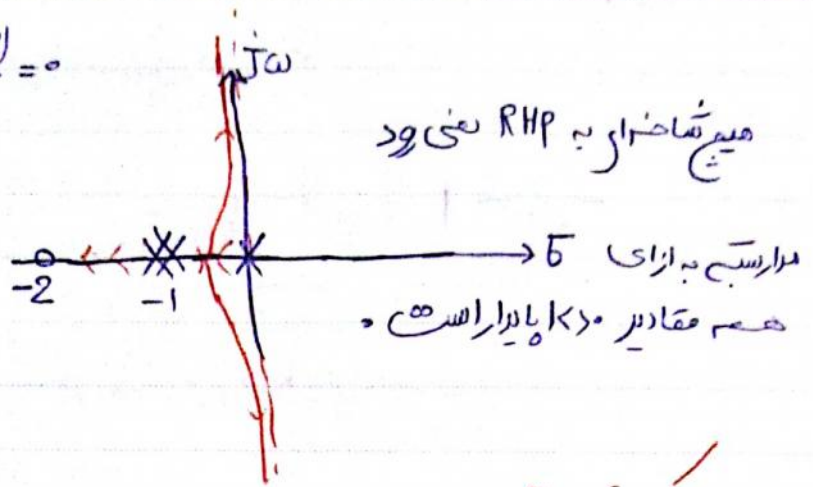 =0
jω
هیچ شاخه‌ای به RHP نمی‌رود
σ
مدار بسته به ازای
-2
-1
همه مقادیر k>0 پایدار است.